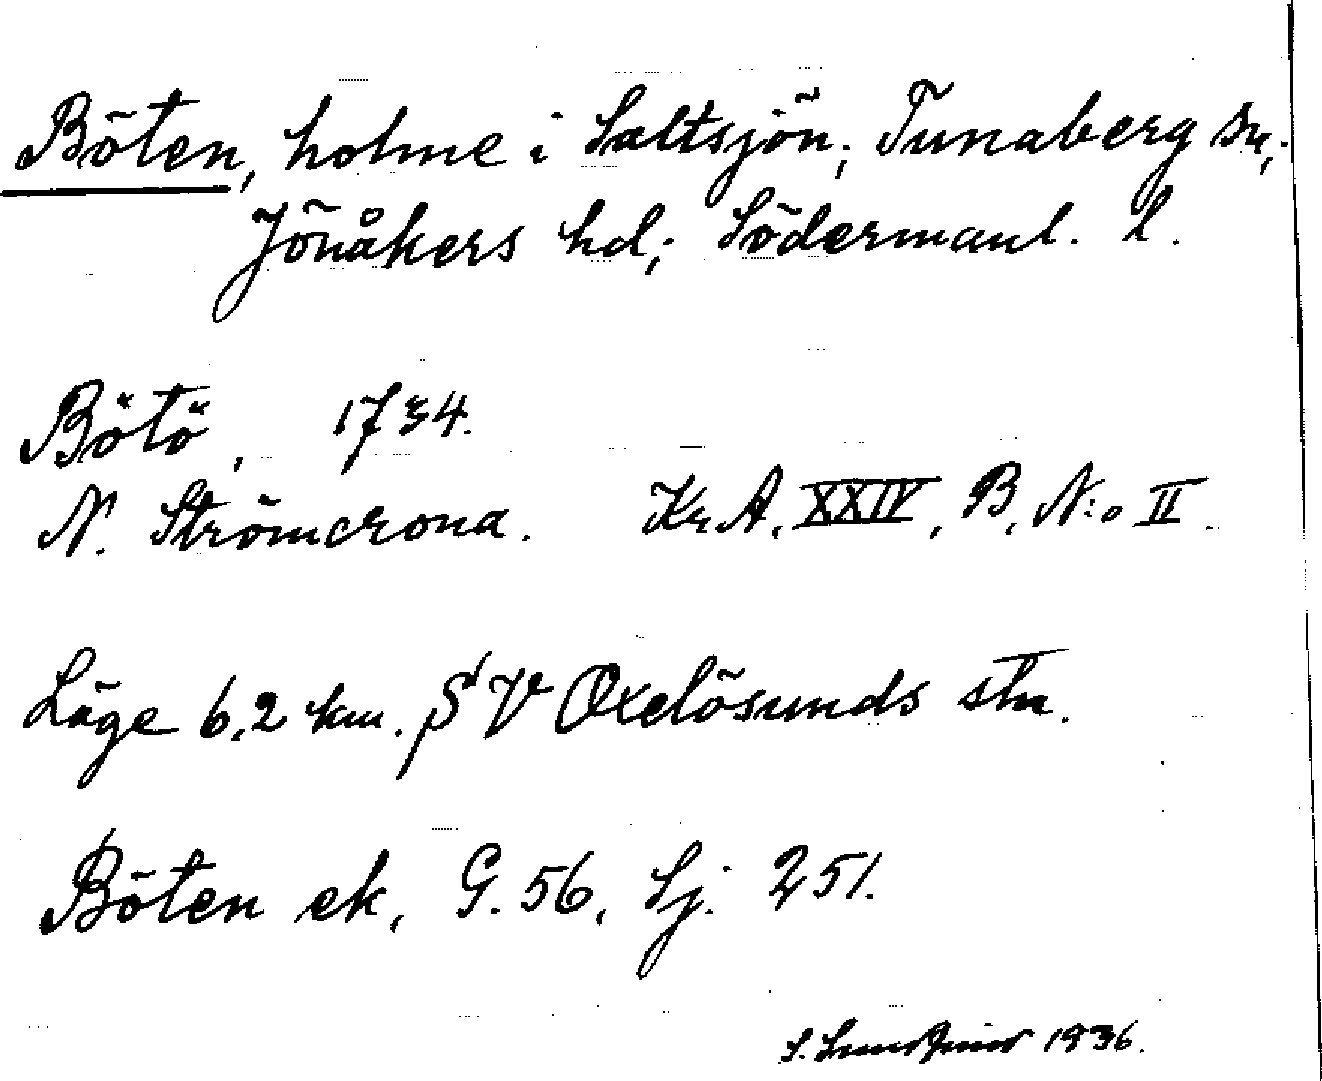 Böten, holme i Saltsjön; Tunaberg sn,
Jönåkers hd; Södermanl. l.
Bötö, 1734.
N. Strömcrona. Kr.A. XXIV, B, N:o II.
Läge 6,2 km. SV Oxelösunds stn.
Böten ek, G. 56, Sj. 251.
S. 1936.